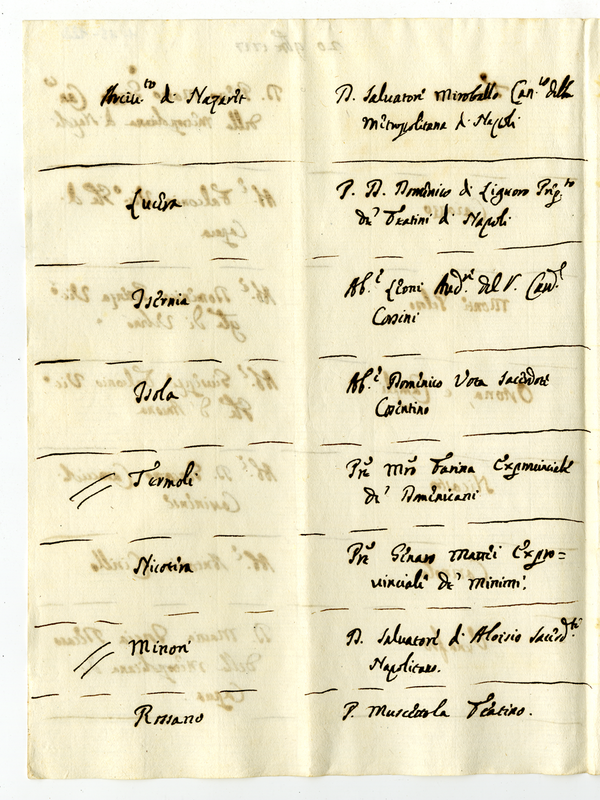 Arciu.to di Nazarit
D. Salvatore Miroballo Can.co della
Metropolitana di Napoli
Lucera
P. D. Domenico di Liguoro Prep.to
de' Teatini di Napoli
Isernia
Ab.e Leoni Aud.re del V. Card.l
Corsini
Isola
Ab.e Domenico Vota Sacerdote
Cosentino
Termoli
P.re Mro Farina Exprovinciale
de' Domenicani
Nicotera
P.re Genaro Mattei Expro=
vinciale de' Minimi.
Minori
D. Salvatore d'Aloisio Sacerd.te
Napolitano.
Rossano
P. Muscettola Teatino.